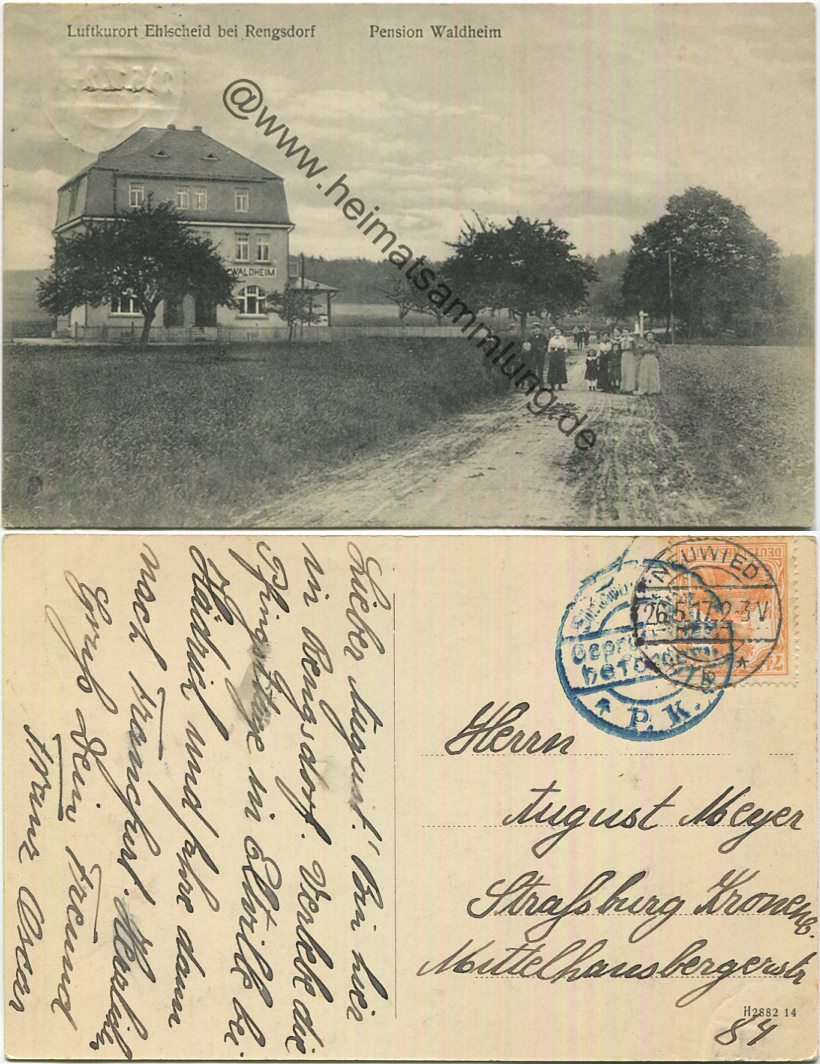 Luftkurort Ehlscheid bei Rengsdorf Pension Waldheim
WALDHEIM
@www.heimatsammlung.de
Lieber August! Bin hier
in Rengsdorf. Verlebe die
Pfingsttage in Eltville bei
und fahre dann
nach Frankfurt. Herzlichen
Gruß Dein Freund
Franz Oscar
NEUWIED
26.5.17.2-3V
P.K.
Herrn
August Meyer
Straßburg Kronenb.
Mittelhausbergerstr
84
H2882 14